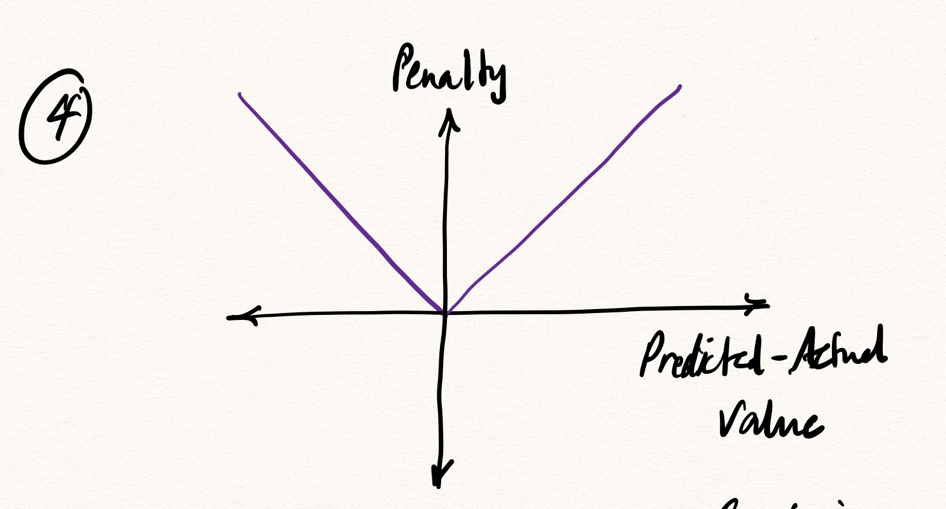 4
Penalty
Predicted - Actual
Value